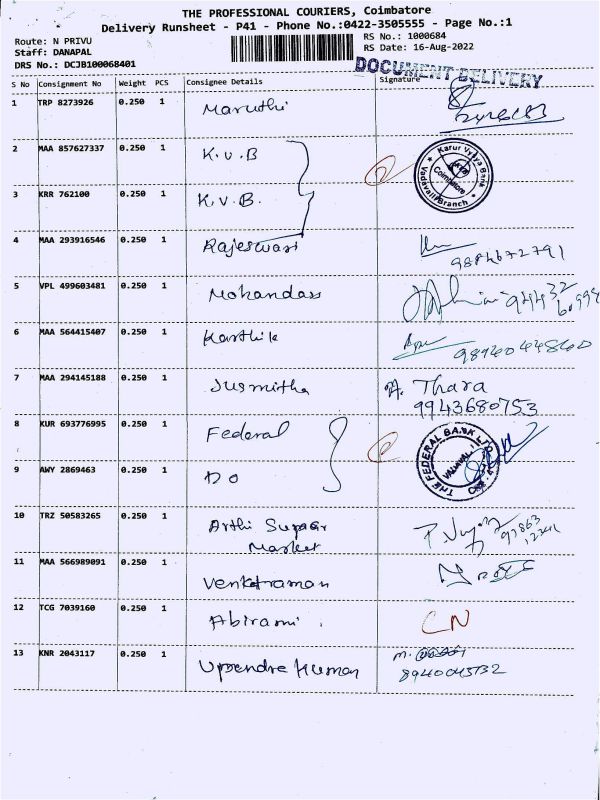 THE PROFESSIONAL COURIERS, Coimbatore
Delivery Runsheet - P41 - Phone No.:0422-3505555 - Page No.:1
Route: N PRIVU
RS No.: 1000684
Staff: DANAPAL
RS Date: 16-Aug-2022
DRS No.: DCJB100068401
DOCUMENT DELIVERY
S No Consignment No Weight PCS Consignee Details Signature
1 TRP 8273926 0.250 1 Maruthi
2 MAA 857627337 0.250 1 K.V.B Karur Vysya Bank KVB Coimbatore Vadavalli Branch
3 KRR 762100 0.250 1 K.V.B.
4 MAA 293916546 0.250 1 Rajeswari
5 VPL 499603481 0.250 1 Mohandass
6 MAA 564415407 0.250 1 Karthik
7 MAA 294145188 0.250 1 Susmitha A. Thara
9943680753
8 KUR 693776995 0.250 1 Federal THE FEDERAL BANK LTD
9 AWY 2869463 0.250 1 DO
10 TRZ 50583265 0.250 1 Arthi Supaar
Market
11 MAA 566989091 0.250 1 Venkatraman
12 TCG 7039160 0.250 1 Abirami CN
13 KNR 2043117 0.250 1 Upendre Kumar M.